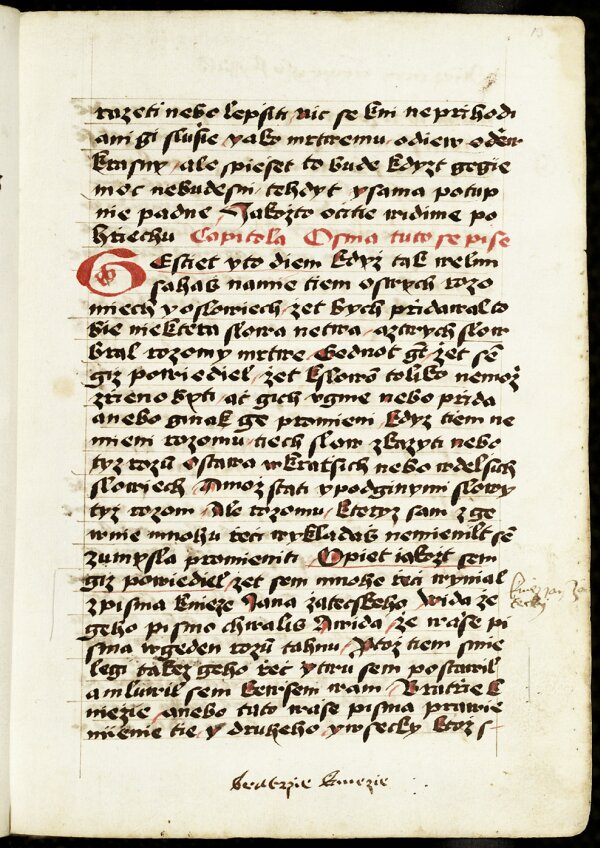 13
razeti nebo lepsiti, nic se k ni neprihodi
ani gi slusie yako mrtwemu odiew odiew
krasny, ale spieset to bude kdyzt gegie
moc nebude s ni, tehdyt y sama potup
nie padne, Jakozto ocitie widime po
hriechu Capitola Osma tuto se pise
Gestiet y to diem kdyz tak welmi
sahas na mie tiem o swych rozo
miech y o slowiech, zet bych pridawal to
bie niektera slowa netwa, a z twych slow
bral rozomy mrtwe Gednot gt, zet sem
giz powiediel, zet k slowom toliko nemoz
zrieno byti, ac gich vgme nebo prida
anebo ginak ge promieni, kdyz tiem ne
mieni rozomu, tiech slow zkazyti nebo
tyz rozum ostawa w kratsich nebo w delsich
slowiech Amoz stati y pod ginymi slowy
tyz rozom Ale rozomu, kteryz sam z ge
wnie mnohu reci wykladas nemienilt sem
z umysla promieniti, Opiet iakozt sem
giz powiediel, zet sem mnohe reci wynial
z pisma knieze Jana zateckeho, wida ze
geho pismo chwalis A wida, ze wase pi
sma w geden rozum tahnu, Protoz tiem smie
legi takez geho rec y twu sem postawil
a mluwil sem k ewsem wam, Bratrie k
niezie, anebo tato wase pisma prawie
mienie tie, y druheho y wsecky ktoz s
knez jan za
tecky
bratrzie kniezie